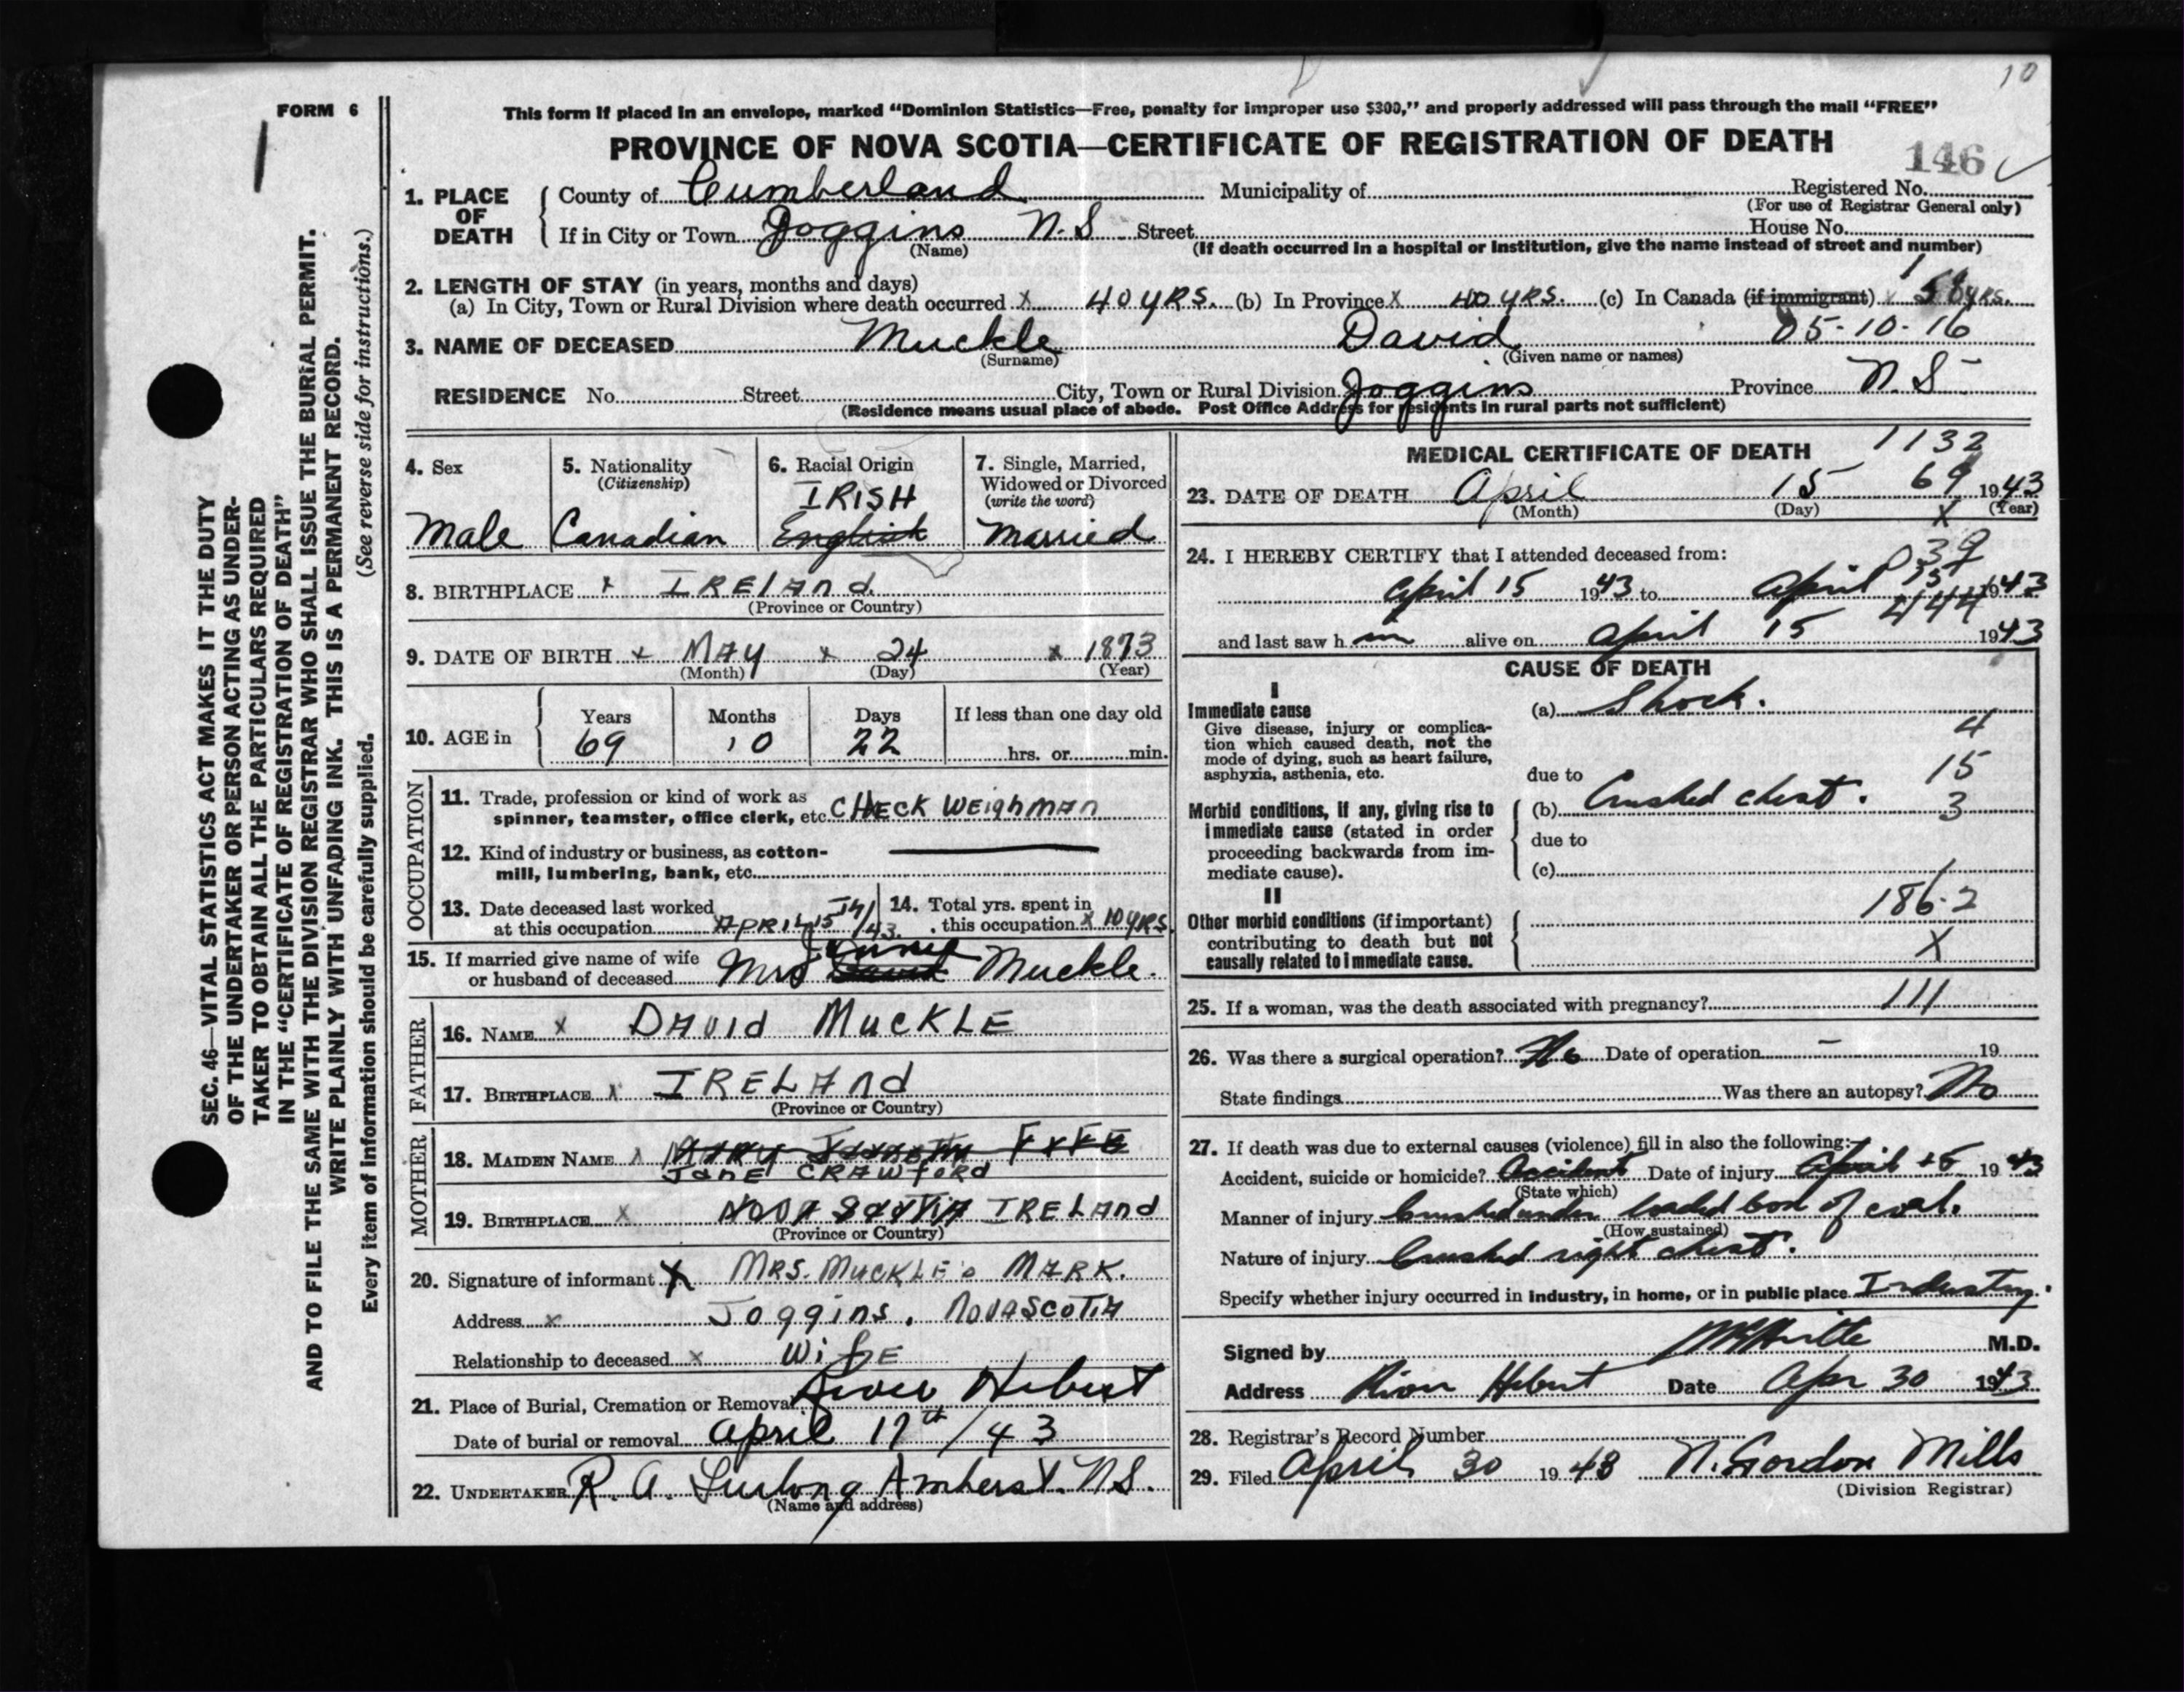 10
FORM 6
This form if placed in an envelope, marked “Dominion Statistics—Free, penalty for improper use $300,” and properly addressed will pass through the mail “FREE”
PROVINCE OF NOVA SCOTIA—CERTIFICATE OF REGISTRATION OF DEATH
146
1. PLACE OF DEATH
County of Cumberland Municipality of Registered No.
(For use of Registrar General only)
If in City or Town Joggins N.S Street House No.
(Name) (If death occurred in a hospital or institution, give the name instead of street and number)
2. LENGTH OF STAY (in years, months and days)
(a) In City, Town or Rural Division where death occurred x 40 YRS. (b) In Province x 40 YRS. (c) In Canada (if immigrant) 58 YRS.
05-10-16
3. NAME OF DECEASED Muckle David
(Surname) (Given name or names)
RESIDENCE No. Street City, Town or Rural Division Joggins Province N.S
(Residence means usual place of abode. Post Office Address for residents in rural parts not sufficient)
SEC. 46—VITAL STATISTICS ACT MAKES IT THE DUTY
OF THE UNDERTAKER OR PERSON ACTING AS UNDER-
TAKER TO OBTAIN ALL THE PARTICULARS REQUIRED
IN THE “CERTIFICATE OF REGISTRATION OF DEATH”
AND TO FILE THE SAME WITH THE DIVISION REGISTRAR WHO SHALL ISSUE THE BURIAL PERMIT.
WRITE PLAINLY WITH UNFADING INK. THIS IS A PERMANENT RECORD.
Every item of information should be carefully supplied. (See reverse side for instructions.)
4. Sex
Male
5. Nationality
(Citizenship)
Canadian
6. Racial Origin
IRISH
English
7. Single, Married,
Widowed or Divorced
(write the word)
Married
8. BIRTHPLACE x IRELAnd.
(Province or Country)
9. DATE OF BIRTH x MAY x 24 x 1873
(Month) (Day) (Year)
10. AGE in
Years Months Days If less than one day old
69 10 22 hrs. or min.
OCCUPATION
11. Trade, profession or kind of work as
spinner, teamster, office clerk, etc. CHECK WEIGHMAN
12. Kind of industry or business, as cotton-
mill, lumbering, bank, etc.
13. Date deceased last worked
at this occupation APRIL 15TH/43.
14. Total yrs. spent in
this occupation x 10 YRS.
15. If married give name of wife
or husband of deceased Mrs David Jennie Muckle.
FATHER
16. NAME x DAVID MUCKLE
17. BIRTHPLACE x IRELAnd
(Province or Country)
MOTHER
18. MAIDEN NAME x
JANE CRAWFORD
19. BIRTHPLACE x NOVA SCOTIA IRELAnd
(Province or Country)
20. Signature of informant X MRS. MUCKLE'S MARK.
Address x Joggins, NOVA SCOTIA
Relationship to deceased x WIFE
21. Place of Burial, Cremation or Removal River Hebert
Date of burial or removal April 17th/43
22. UNDERTAKER R. A. Furlong Amherst. N.S.
(Name and address)
MEDICAL CERTIFICATE OF DEATH 1132
69
23. DATE OF DEATH April 15 1943
(Month) (Day) (Year)
X
24. I HEREBY CERTIFY that I attended deceased from:
039
April 15 1943 to April 15 1943
444
and last saw h im alive on April 15 1943
CAUSE OF DEATH
I
Immediate cause
Give disease, injury or complica-
tion which caused death, not the
mode of dying, such as heart failure,
asphyxia, asthenia, etc.
(a) Shock.
4
15
due to
3
Morbid conditions, if any, giving rise to
immediate cause (stated in order
proceeding backwards from im-
mediate cause).
(b) Crushed chest.
due to
(c)
186.2
X
II
Other morbid conditions (if important)
contributing to death but not
causally related to immediate cause.
25. If a woman, was the death associated with pregnancy? 111
26. Was there a surgical operation? No Date of operation – 19
State findings Was there an autopsy? No
27. If death was due to external causes (violence) fill in also the following:
Accident, suicide or homicide? Accident Date of injury April 15 1943
(State which)
Manner of injury Crushed under loaded box of coal.
(How sustained)
Nature of injury Crushed right chest.
Specify whether injury occurred in industry, in home, or in public place Industry.
Signed by M.D.
Address River Hebert Date Apr 30 1943
28. Registrar's Record Number
29. Filed April 30 1943 N. Gordon Mills
(Division Registrar)